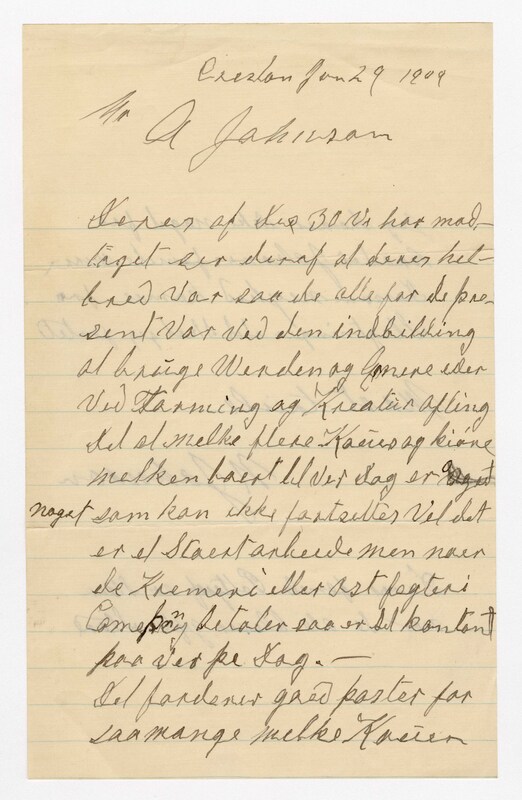 Creston Jan 29 1909
Mr
A Johnson
Deres af Des 30 Vi har mod-
taget ser deraf at deres hel-
bred Var saa de alle for de pre-
sent Var Ved den indbilding
at bruge Werden og
Ved Farming og Kreatur afling
Det at melke flere Kouer og kiøre
melken boert til Ver Dag er
nogat som kan ikke fortsettes Vel det
er et Stoert arbeide men naer
de Kremeri eller ost fegteri
betaler saa er det kontant
paa Ver pe Dag. —
Det fordener goed paster for
saa mange melke Kouer